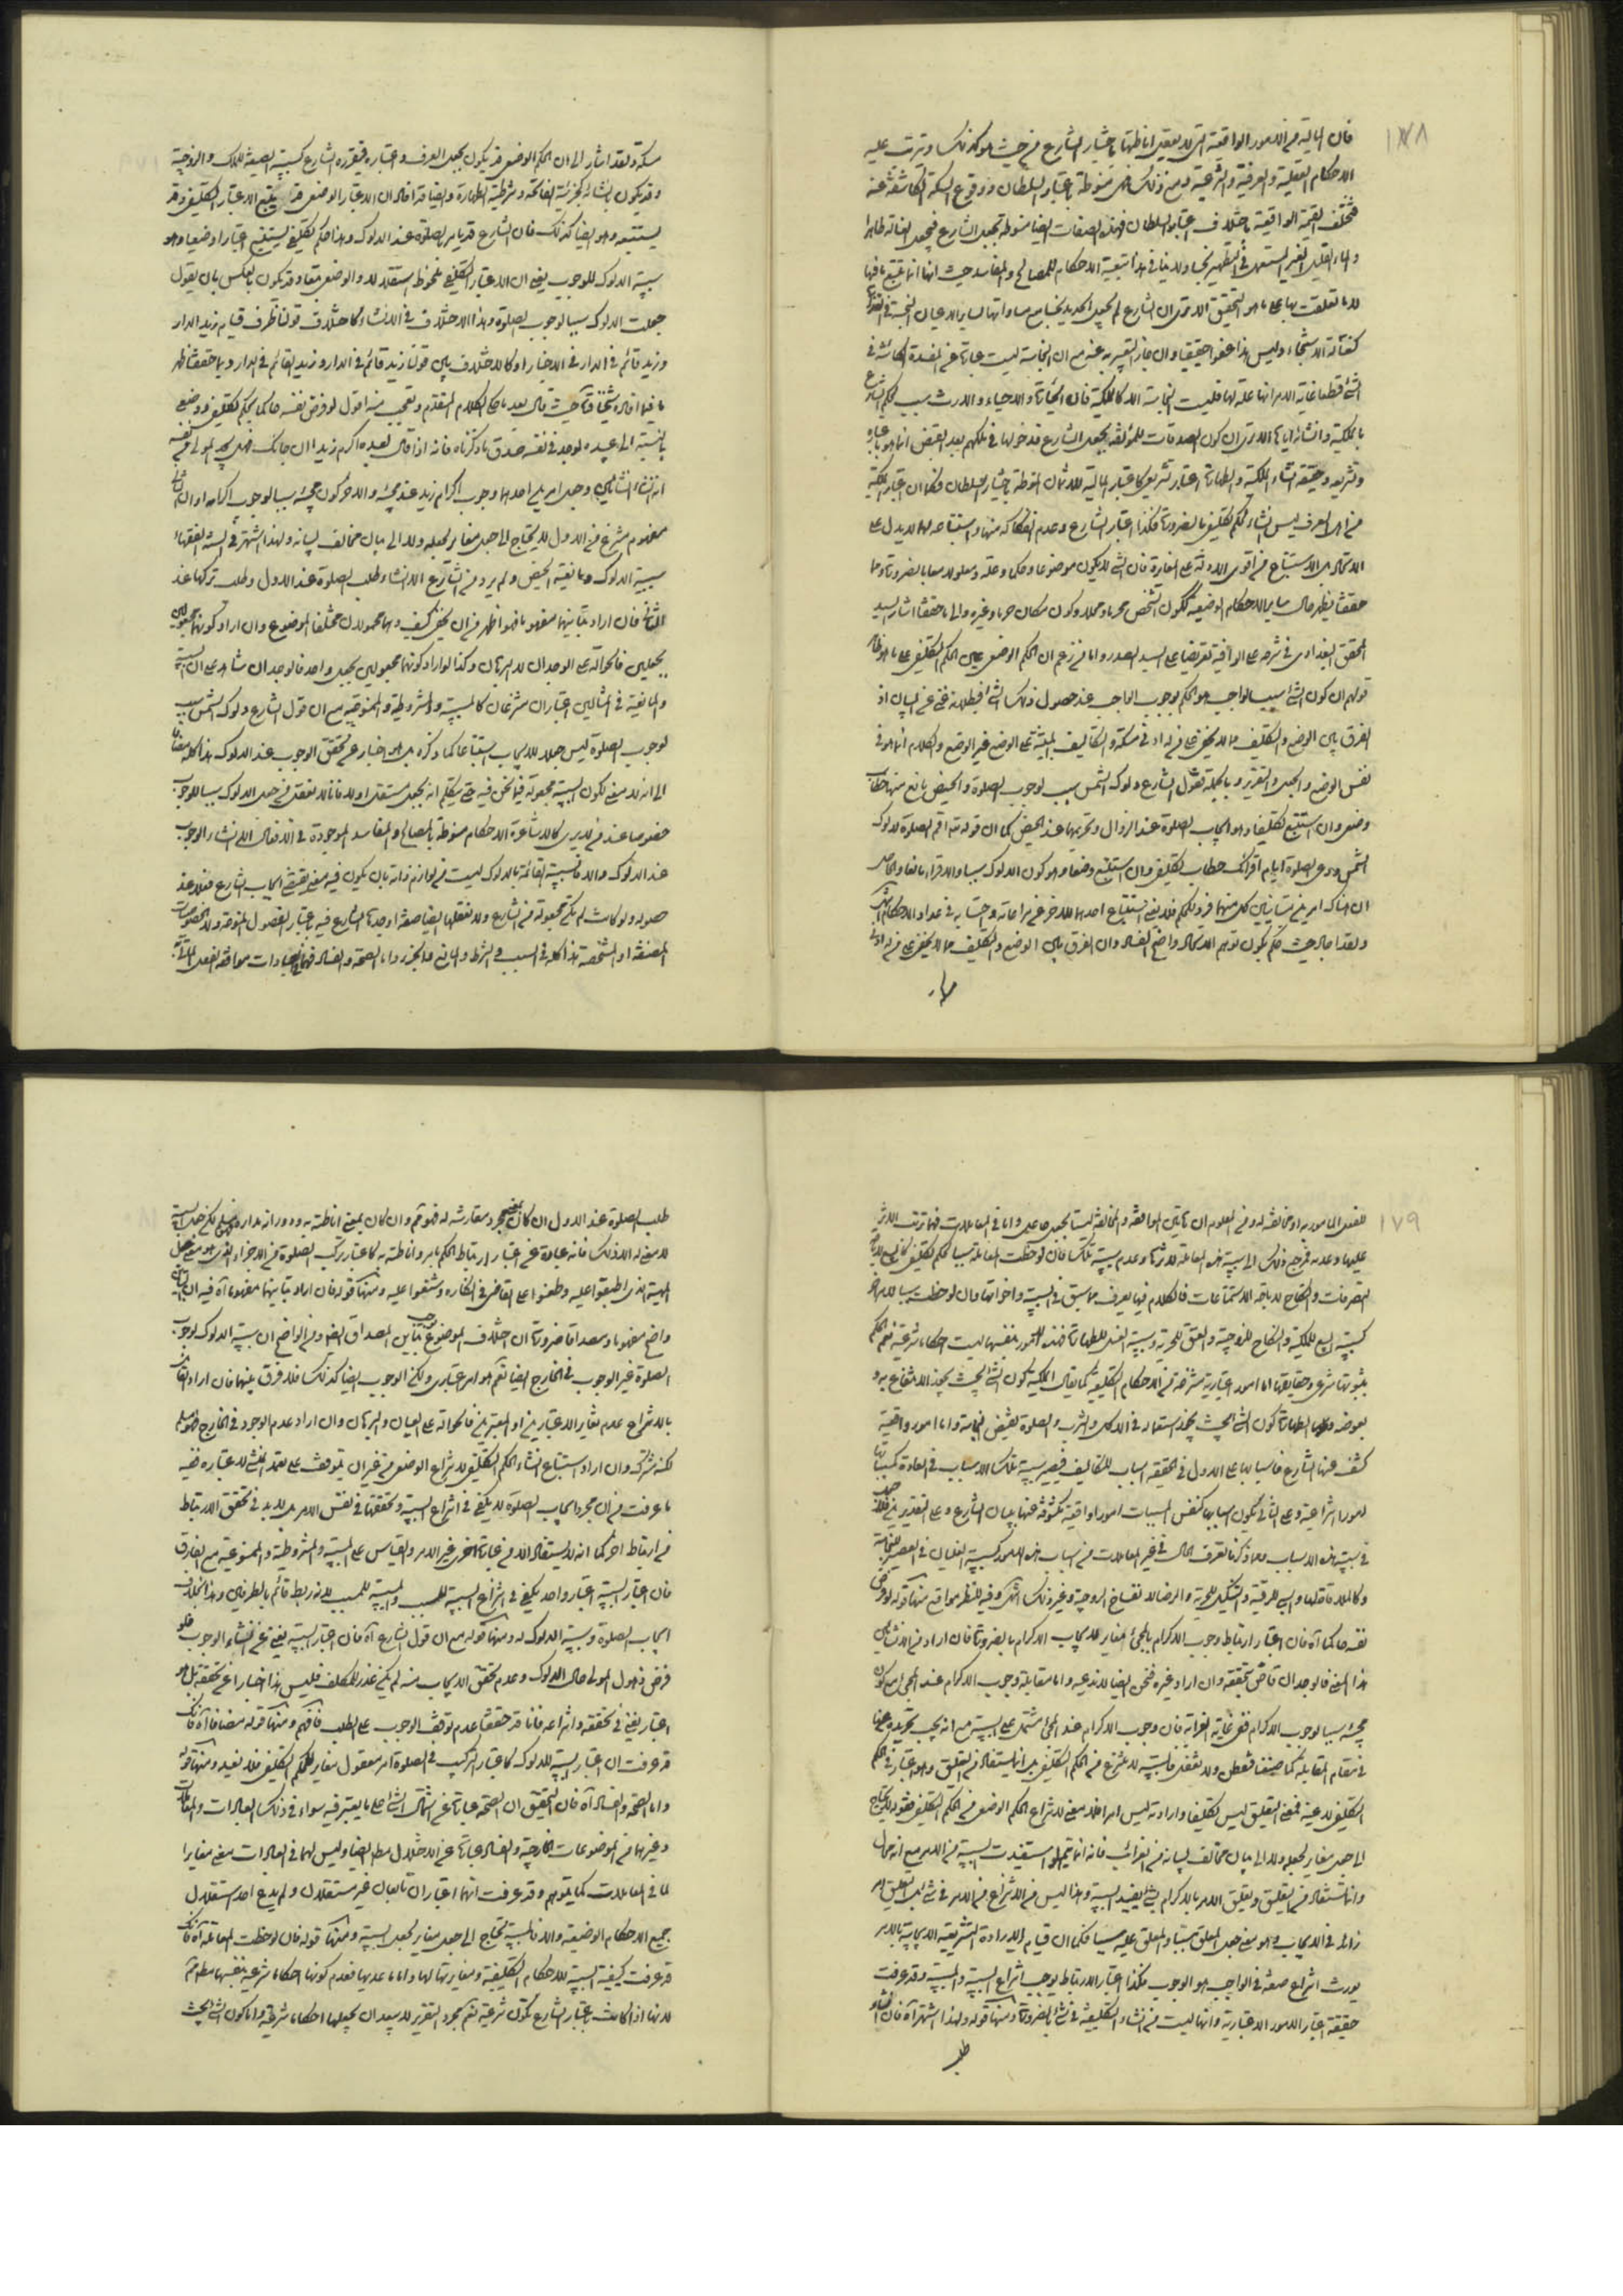 ١٧٨
فان المالية من الامور الواقعية التي لا يعقل اناطتها باختيار الشارع من حيث هو كذلك وترتب عليه
الاحكام العقلية والعرفية والشرعية ومع ذلك هي منوطة باعتبار السلطان ووقوع السكة الكاشفة عنه
فتختلف القيمة الواقعية باختلاف اعتبار السلطان فهذه الصفات ايضا منوطة بجعل الشارع فيجعل الغسالة طاهرا
والماء القليل الغير المستعمل في التطهير نجسا ولا ينافي هذا تبعية الاحكام للمصالح والمفاسد حيث انها انما تتبع ما فيها
لا ما تعلقت بها على ما هو التحقيق الا ترى ان الشارع لم يجعل الحديد نجسا مع مساواتها لساير الاعيان النجسة في
كغسالة الاستنجاء وليس هذا عفوا حقيقيا وان جاز التعبير به عنه مع ان النجاسة ليست عبارة عن المفسدة الكائنة في
الشئ قطعا غاية الامر انها علة لها فليست النجاسة الا كالملكية فان الحيازة والاحياء والارث سبب لحكم الشارع
بالملكية وانشائه اياها الا ترى ان كون الصدقات للمؤلفة بجعل الشارع فدخولها في ملكهم بعد القبض انما هو باعتباره
وتشريعه وحقيقة انشاء الملكية والطهارة اعتبار تشريعي كاعتبار المالية للاثمان المنوطة باختيار السلطان فكما ان اعتبار الملكية
من اهل العرف ليس انشاء لحكم تكليفي بالضرورة فكذا اعتبار الشارع وعدم انفكاكه منها واستتباعه لها لا يدل على
الاتحاد بل الاستتباع من اقوى الادلة على المغايرة فان الشئ لا يكون موضوعا وحكما وعلة ومعلولا معا بالضرورة ومما
حققنا يظهر حال ساير الاحكام الوضعية ككون الشخص محرما ومحلا وكون مكان حرما وغيره والى ما حققنا اشار السيد
المحقق البغدادي في شرحه على الوافية تعريضا على السيد الصدر واما من زعم ان الحكم الوضعي عين الحكم التكليفي على ما هو ظاهر
قولهم ان كون الشئ سببا لواجب هو الحكم بوجوب الواجب عند حصول ذلك الشئ فبطلانه غني عن البيان اذ
الفرق بين الوضع والتكليف مما لا يخفى على من له ادنى مسكة والتكاليف المبتنية على الوضع غير الوضع والكلام انما هو في
نفس الوضع والجعل والتقرير وبالجملة فقول الشارع دلوك الشمس سبب لوجوب الصلوة والحيض مانع منها خطاب
وضعي وان استتبع تكليفا وهو ايجاب الصلوة عند الزوال وتحريمها عند الحيض كما ان قوله تعالى اقم الصلوة لدلوك
الشمس ودعي الصلوة ايام اقرائك خطاب تكليفي وان استتبع وضعا وهو كون الدلوك سببا والاقراء مانعا والحاصل
ان هناك امرين متباينين كل منهما فرد للحكم فلا يغني استتباع احدهما للاخر عن مراعاته واحتسابه في عداد الاحكام انتهى
ولقد اجاد حيث حكم بكون توهم الاتحاد واضح الفساد وان الفرق بين الوضع والتكليف مما لا يخفى على من له ادنى
مسكة ولقد اشار الى ان الحكم الوضعي قد يكون بجعل العرف واعتباره فيقرره الشارع كسببية الصيغة للملك والزوجية
وقد يكون بانشائه كجزئية الفاتحة وشرطية الطهارة وايضا قد افاد ان الاعتبار الوضعي قد يتبع الاعتبار التكليفي وقد
يستتبعه وهو ايضا كذلك فان الشارع قد يامر بالصلوة عند الدلوك وهذا حكم تكليفي يستتبع اعتبارا وضعيا وهو
سببية الدلوك للوجوب يعني ان الاعتبار التكليفي ملحوظ استقلالا والوضعي تبعا وقد يكون بالعكس بان يقول
جعلت الدلوك سببا لوجوب الصلوة وهذا الاختلاف في الانشاء كاختلاف قولنا ظرف قيام زيد الدار
وزيد قائم في الدار في الاخبار او كالاختلاف بين قولنا زيد قائم في الدار وزيد القائم في الدار وبما حققنا ظهر
ما فيما افاده شيخنا قده حيث قال بعد ما حكى الكلام المتقدم وتعجب منه اقول لو فرض نفسه حاكما بحكم تكليفي ووضعي
بالنسبة الى عبده لوجد في نفسه صدق ما ذكرناه فانه اذا قال لعبده اكرم زيدا ان جاءك فهل يجد المولى من نفسه
انه انشأ انشائين وجعل امرين احدهما وجوب اكرام زيد عند مجيئه والاخر كون مجيئه سببا لوجوب اكرامه او ان الثاني
مفهوم منتزع من الاول لا يحتاج الى جعل مغاير لجعله ولا الى بيان مخالف لبيانه ولهذا اشتهر في السنة الفقهاء
سببية الدلوك ومانعية الحيض ولم يرد من الشارع الا انشاء طلب الصلوة عند الاول وطلب تركها عند
الثاني فان اراد تباينهما مفهوما فهو اظهر من ان يخفى كيف وهما محمولان مختلفا الموضوع وان اراد كونهما مجعولين
بجعلين فالحوالة على الوجدان لا البرهان وكذا لو اراد كونهما مجعولين بجعل واحد فالوجدان شاهد على ان السببية
والمانعية في المثالين اعتباران منتزعان كالمسببية والمشروطية والممنوعية مع ان قول الشارع دلوك الشمس سبب
لوجوب الصلوة ليس جعلا للايجاب استتباعا كما ذكره بل هو اخبار عن تحقق الوجوب عند الدلوك هذا كله مضافا
الى انه لا معنى لكون السببية مجعولة فيما نحن فيه حتى يتكلم انه بجعل مستقل او لا فانا لا نعقل من جعل الدلوك سببا للوجوب
خصوصا عند من لا يرى كالاشاعرة الاحكام منوطة بالمصالح والمفاسد الموجودة في الافعال الا انشاء الوجوب
عند الدلوك والا فالسببية القائمة بالدلوك ليست من لوازم ذاته بان يكون فيه معنى يقتضي ايجاب الشارع فعلا عند
حصوله ولو كانت لم تكن مجعولة من الشارع ولا نعقلها ايضا صفة اوجدها الشارع فيه باعتبار الفصول المنوعة ولا الخصوصيات
المصنفة او المشخصة هذا كله في السبب والشرط والمانع والجزء واما الصحة والفساد فهما في العبادات موافقة الفعل المأتي به
١٧٩
للفعل المامور به او مخالفته له ومن المعلوم ان هاتين الموافقة والمخالفة ليستا بجعل جاعل واما في المعاملات فهما ترتب الاثر
عليها وعدمه فمرجع ذلك الى سببية هذه المعاملة لاثرها وعدم سببية تلك فان لوحظت المعاملة سببا لحكم تكليفي كالبيع لاباحة
التصرفات والنكاح لاباحة الاستمتاعات فالكلام فيها يعرف مما سبق في السببية واخواتها وان لوحظت سببا لامر اخر
كسببية البيع للملكية والنكاح للزوجية والعتق للحرية وسببية الغسل للطهارة فهذه الامور بنفسها ليست احكاما شرعية نعم الحكم
بثبوتها شرعي وحقايقها اما امور اعتبارية منتزعة من الاحكام التكليفية كما يقال الملكية كون الشئ بحيث يجوز الانتفاع به و
بعوضه والطهارة كون الشئ بحيث يجوز استعماله في الاكل والشرب والصلوة نقيض النجاسة واما امور واقعية
كشف عنها الشارع فاسبابها على الاول في الحقيقة اسباب للتكاليف فتصير سببية تلك الاسباب في العادة كمسبباتها
امورا انتزاعية وعلى الثاني يكون اسبابها كنفس المسببات امورا واقعية مكشوفا عنها ببيان الشارع وعلى التقديرين فلا جعل
في سببية هذه الاسباب ومما ذكرنا تعرف الحال في غير المعاملات من اسباب هذه الامور كسببية الغليان في العصير للنجاسة
وكالملاقاة لها والسبي للرقية والتنكيل للحرية والرضاع لانفساخ الزوجية وغير ذلك انتهى وفيه للنظر مواقع منها قوله لو فرض
نفسه حاكما آه فان اعتبار ارتباط وجوب الاكرام بالمجئ مغاير لايجاب الاكرام بالضرورة فان اراد من الانشائين
هذا المعنى فالوجدان قاض بتحققه وان اراد غيره فنحن ايضا لا ندعيه واما مقابلة وجوب الاكرام عند المجئ مع كون
مجيئه سببا لوجوب الاكرام ففي غاية الغرابة فان وجوب الاكرام عند المجئ مشتمل على السببية مع انه يجب تجريده عنها
في مقام المقابلة كما صنعنا فتفطن ولا تغفل فالسببية لا تنتزع من الحكم التكليفي بل انما يستفاد من التعليق وهو اعتبار في الحكم
التكليفي لا عينه فمعنى التعليق ليس تكليفا وارادته ليس امرا فلا معنى لانتزاع الحكم الوضعي من الحكم التكليفي فقوله لا يحتاج
الى جعل مغاير لجعله ولا الى بيان مخالف لبيانه من الغرائب فانه انما يتم لو استفيدت السببية من الامر مع انه محال
وانما تستفاد من التعليق وتعليق الامر بالاكرام بشئ يفيد السببية وهذا ليس من الانتزاع من الامر في شئ بل التعليق امر
زائد في الايجاب وهو معنى جعل المعلق مسببا والمعلق عليه سببا فكما ان قيام الارادة التشريعية الايجابية بالامر
يورث انتزاع صفة في الواجب هو الوجوب فكذا اعتبار الارتباط يوجب انتزاع السببية والمسببية وقد عرفت
حقيقة اعتبار الامور الاعتبارية وانها ليست من انشاء التكليفية في شئ بالضرورة ومنها قوله ولهذا اشتهر آه فان انشاء
طلب الصلوة عند الاول ان كان بمعنى مجرد مقارنته له فهو مم وان كان بمعنى اناطته به ودورانه مداره فمسلم لكن جعل السببية
لا معنى له الا ذلك فانه عبارة عن اعتبار ارتباط الحكم بامر واناطته به كاعتبار تركب الصلوة من الاجزاء الذي هو معنى جعل
المهية الذي اطبقوا عليه وطعنوا على القاضي في انكاره وشنعوا عليه ومنها قوله فان اراد تباينهما مفهوما آه فيه ان التباين
واضح مفهوما ومصداقا ضرورة ان اختلاف الموضوع يوجب تباين المصداق ايضا ومن الواضح ان سببية الدلوك لوجوب
الصلوة غير الوجوب في الخارج ايضا نعم هو امر اعتباري ولكن الوجوب ايضا كذلك فلا فرق بينهما فان اراد القائل
بالانتزاع عدم تغاير الاعتبارين او المعتبرين فالحوالة على العيان والبرهان وان اراد عدم الوجود في الخارج فمسلم
لكنه مشترك وان اراد استتباع انشاء الحكم التكليفي لانتزاع الوضعي من غير ان يتوقف على تعمد المنشئ لاعتباره ففيه
ما عرفت من ان مجرد ايجاب الصلوة لا يكفي في انتزاع السببية وتحققها في نفس الامر بل لا بد في تحقق الارتباط
من ارتباط اخر كما انه لا يستفاد الا من عبارة اخرى غير الامر والقياس على المسببية والمشروطية والممنوعية مع الفارق
فان اعتبار السببية اعتبار واحد يكفي في انتزاع السببية للسبب والمسببية للمسبب لانه ربط قائم بالطرفين وهذا بخلاف
ايجاب الصلوة وسببية الدلوك له ومنها قوله مع ان قول الشارع آه فان اعتبار السببية يغني عن انشاء الوجوب فلو
فرض ذهول المولى حال الدلوك وعدم تحقق الايجاب منه لم يكن عذر للمكلف فليس هذا اخبارا عن تحققه بل هو
اعتبار يغني في تحققه وانتزاعه فانا قد حققنا عدم توقف الوجوب على الطلب فافهم ومنها قوله مضافا آه فانك
قد عرفت ان اعتبار السببية للدلوك كاعتبار التركيب في الصلوة امر معقول مغاير للحكم التكليفي فلا نعيد ومنها قوله
واما الصحة والفساد آه فان التحقيق ان الصحة عبارة عن اشتمال الشئ على ما يعتبر فيه سواء في ذلك العبادات والمعاملات
وغيرهما من الموضوعات الخارجية والفساد عبارة عن الاختلال مطلقا ايضا وليس لهما في العبادات معنى مغايرا
لما في المعاملات كما يتوهم وقد عرفت انهما اعتباران تابعان غير مستقلين ولم يدع احد استقلال
جميع الاحكام الوضعية والا فالسببية تحتاج الى جعل مغاير لجعل المسببية ومنها قوله فان لوحظت المعاملة آه فانك
قد عرفت كيفية السببية للاحكام التكليفية ومغايرتها لها واما ما عديها فعدم كونها احكاما شرعية بنفسها مطلقا مم
لانها اذا كانت باعتبار الشارع تكون شرعية نعم مجرد التقرير لا يبعد ان يجعلها احكاما شرعية واما كون الشئ بحيث